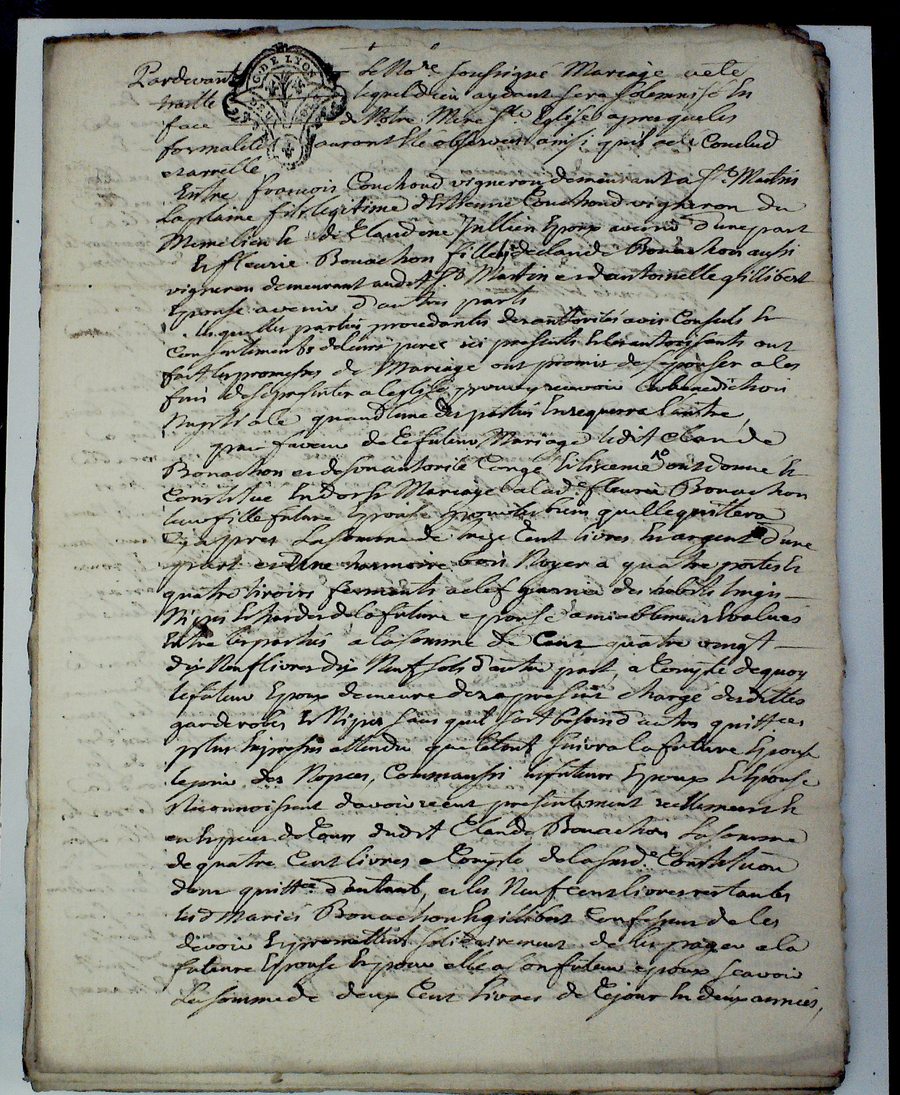 G. DE LYON
Pardevant le No.re soussigné Mariage a été
traitté lequel dieu aydant sera solemnisé En
face de Notre Mere S.te Eglise apres que les
formalités auront été observées ainsi qu'il a été Conclud
et arretté
Entre François Couchoud vigneron demeurant a S.t Martin
La plaine fils legitime d'Estienne Couchoud vigneron du
Meme lieu & de Claudine Jullien Epoux avenir d'une part
Et fleurie Bonachon fille de Claude Bonachon aussi
vigneron demeurant audit S.t Martin et d'antoinette gillibert
Epouse avenir d'autre part
Lesquelles parties procedantes des autorités avis Conseils &
Consentiments de leurs peres ici presents & les autorisants ont
fait les promesses de Mariage ont promis de s'epouser a les
fins de se presenter a l'eglise pour y recevoir la benediction
Nuptiale quand l'une des parties En requerra l'autre,
en faveur de ce futeur Mariage ledit Claude
Bonachon et de son autorité Congé & licence ont donné &
Constitué En dot & Mariage a lad.e fleurie Bonachon
leur fille future Epouse pour les biens quelle quittera
cy apres La somme de treze Cent livres En argent d'une
part et Une armoire bois Noyer a quatre portes &
quatre tiroirs fermants a clef garnie des habits linges
Nipes & hardes de la future epouse amiablement Evalués
Entre les parties a la somme de Cent quatre vingt
dix Neuf livres dix Neuf sols d'autre part, a Compte de quoy
le futeur Epoux demeure des a present chargé desdittes
garderobes & Nipes sans quil soit besoin d'autres quittces
plus Expresses attendu que le tout suivra la future Epouse
le jour des Nopces, Comm'aussi les futeurs Epoux & Epouse
Reconnoissent d'avoir receu presentement reellement &
en Especes de Cours dudit Claude Bonachon La somme
de quatre Cent livres a Compte de la susd.e Constitution
dont quittce d'autant, et les Neuf cent livres restantes
les d Mariés Bonachon & gilibert Confessent de les
devoir & promettent solidairement de les payer a la
future Epouse & pour elle a son futeur epoux scavoir
La somme de deux Cent livres de ce jour En deux années,